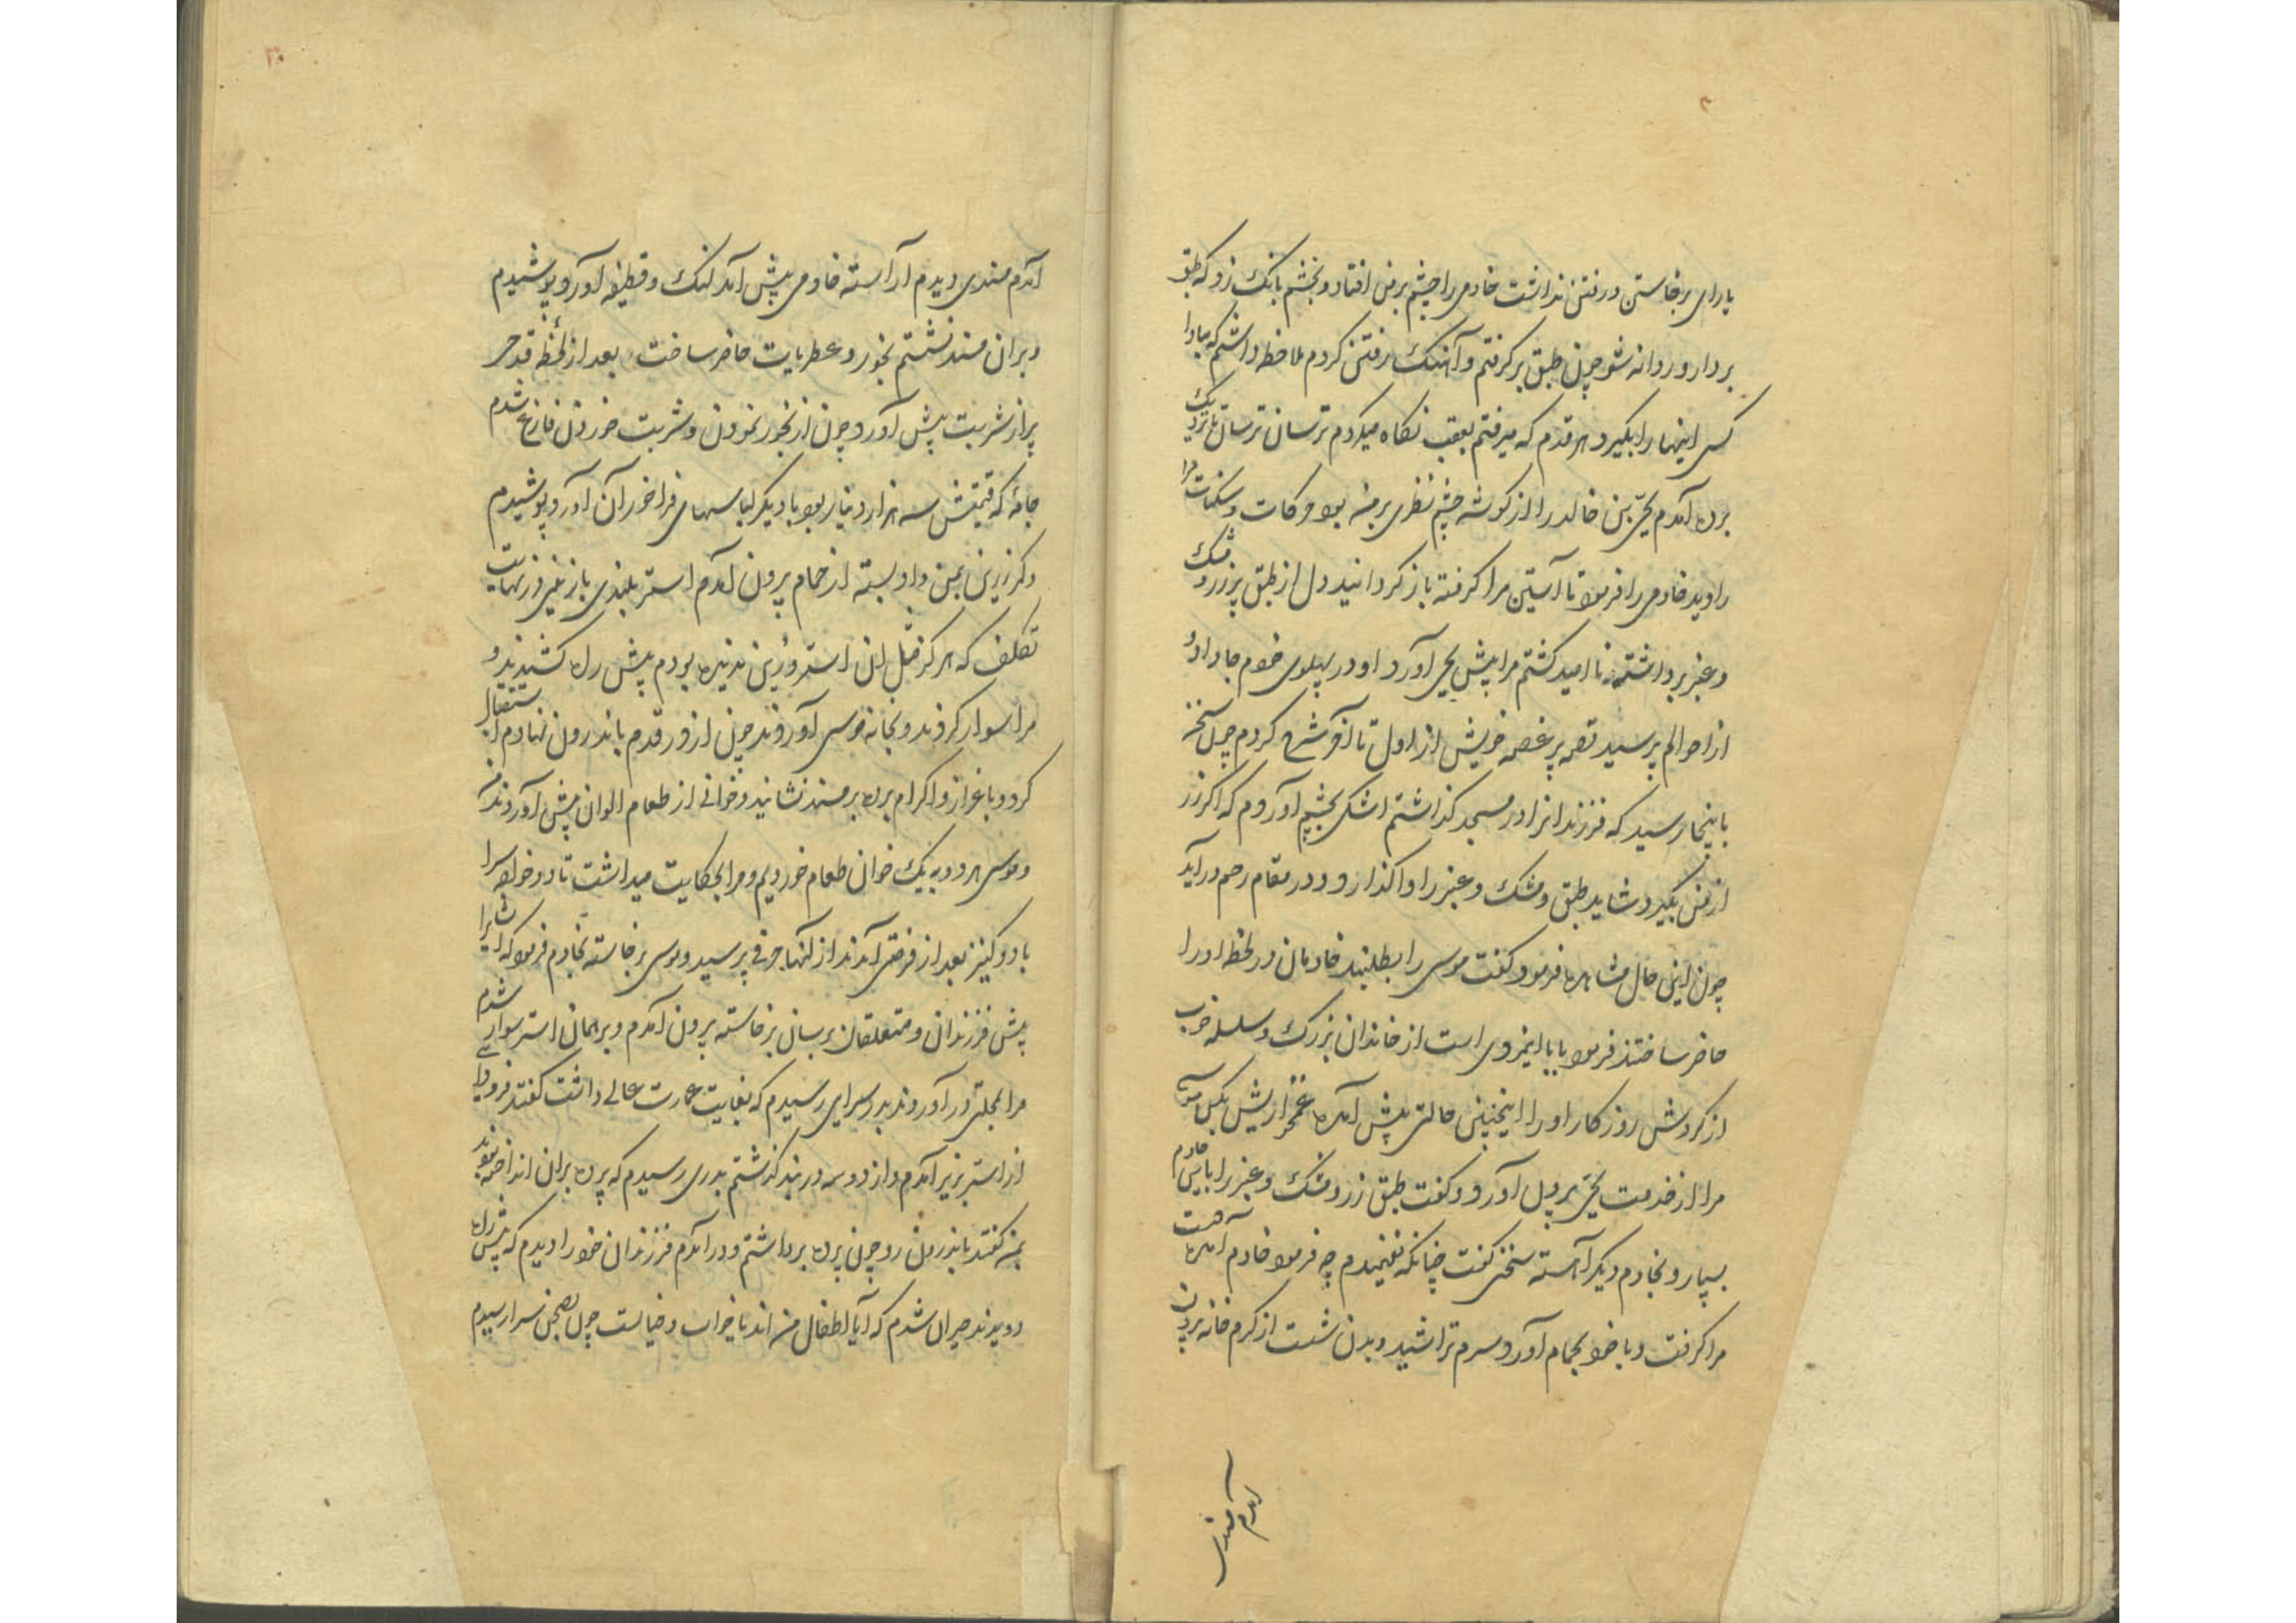 یارای برخاستن و رفتن نداشت خادمی را چشم بر من افتاد و بخشم بانک زد که طبق
بردار و روانه شو چون طبق برکرفتم و آهنک رفتن کردم ملاحظه داشتم که مبادا
کسی اینها را بکیرد هر قدم که میرفتم بعقب نکاه میکردم ترسان ترسان تا نزدیک
پرده آمدم یحیی بن خالد را از کوشه چشم نظری بر من بود حرکات و سکنات مرا
را دید خادمی را فرمود تا آستین مرا کرفته باز کردانید دل از طبق پر زر و مشک
و عنبر برداشته نا امید کشتم مرا پیش یحیی آورد او در پهلوی خودم جا داده
از احوالم پرسید قصه پر غصه خویش از اول تا آخر شرح کردم چون سخن
باینجا رسید که فرزندانرا در مسجد کذاشتم اشک بچشم آوردم که اکر زر
از من بکیرد شاید طبق و مشک و عنبر را واکذارد و در مقام رحم درآید
چون این حال مشاهده فرمود کفت موسی را بطلبند خادمان در لحظه او را
حاضر ساختند فرمود بابا اینمردی است از خاندان بزرک و سلسله خوب
از کردش روزکار او را اینچنین حالتی پیش آمده غمخواریش بکن موسی
مرا از خدمت یحیی بر پل آورد و کفت طبق زر و مشک و عنبر را باین خادم
بسپار و بخادم دیکر آهسته سخنی کفت چنانکه نفهمیدم چه فرمود خادم آمده دست
مرا کرفت و با خود بحمام آورد و سرم تراشید و بدن شست از کرم خانه بیرون
آمدم مسندی
آمدم مسندی دیدم آراسته خادمی پیش آمد لنک و قطیفه آورد پوشیدم
و بران مسند نشستم بخور و عطریات حاضر ساخت بعد از لحظه قدحی
پر از شربت پیش آورد چون از بخور نمودن و شربت خوردن فارغ شدم
جامهٔ که قیمتش سه هزار دینار بود با دیکر لباسهای فراخور آن آورد پوشیدم
و کمر زرین بمن داد بسته از حمام بیرون آمدم استر بلندی با زینی در نهایت
تکلف که هرکز مثل ان استر و زین ندیده بودم پیش من کشیدند و
مرا سوار کردند و بخانه موسی آوردند چون از در قدم باندرون نهادم استقبال
کرد و باعزاز و اکرام برده بر مسند نشانید و خوانی از طعام الوان پیش آوردند من
و موسی هر دو به یک خوان طعام خوردیم و مرا بحکایت میداشت تا دو خواجه سرا
با دو کنیز بعد از فرصتی آمدند از آنها حرفی پرسید و موسی برخاسته بخادم فرمود که ایشانرا
پیش فرزندان و متعلقان برسان برخاسته بیرون آمدم و بر همان استر سوار شدم
مرا بمحلتی در آوردند بدر سرایی رسیدم که بغایت عمارت عالی داشت کفتند فرود آی
از استر بزیر آمدم و از دو سه دربند کذشتم بدری رسیدم که پرده بران انداخته بودند
بمن کفتند باندرون رو چون پرده برداشتم و در آمدم فرزندان خود را دیدم که پیش من
دویدند حیران شدم که آیا اطفال من اند یا خواب و خیالست چون بصحن سرا رسیدم